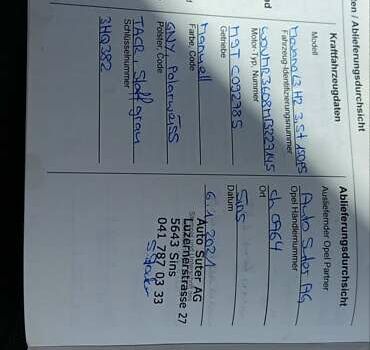 ten / Ablieferungsdurchsicht
Kraftfahrzeugdaten
Modell
Movano B H2 3,5t 150PS
Fahrzeug-Identifizierungsnummer
Motor-Typ, Nummer
M9T
Getriebe
Manuell
Farbe, Code
GNY Polarweiss
Polster, Code
TACR, Stoff grau
Schlüsselnummer
3H0382
Ablieferungsdurchsicht
Ausliefernder Opel Partner
Auto Suter AG
Opel Händlernummer
CH CA64
Ort
Sins
Datum
6.1.2021
Auto Suter AG
Luzernerstrasse 27
5643 Sins
041 787 03 33